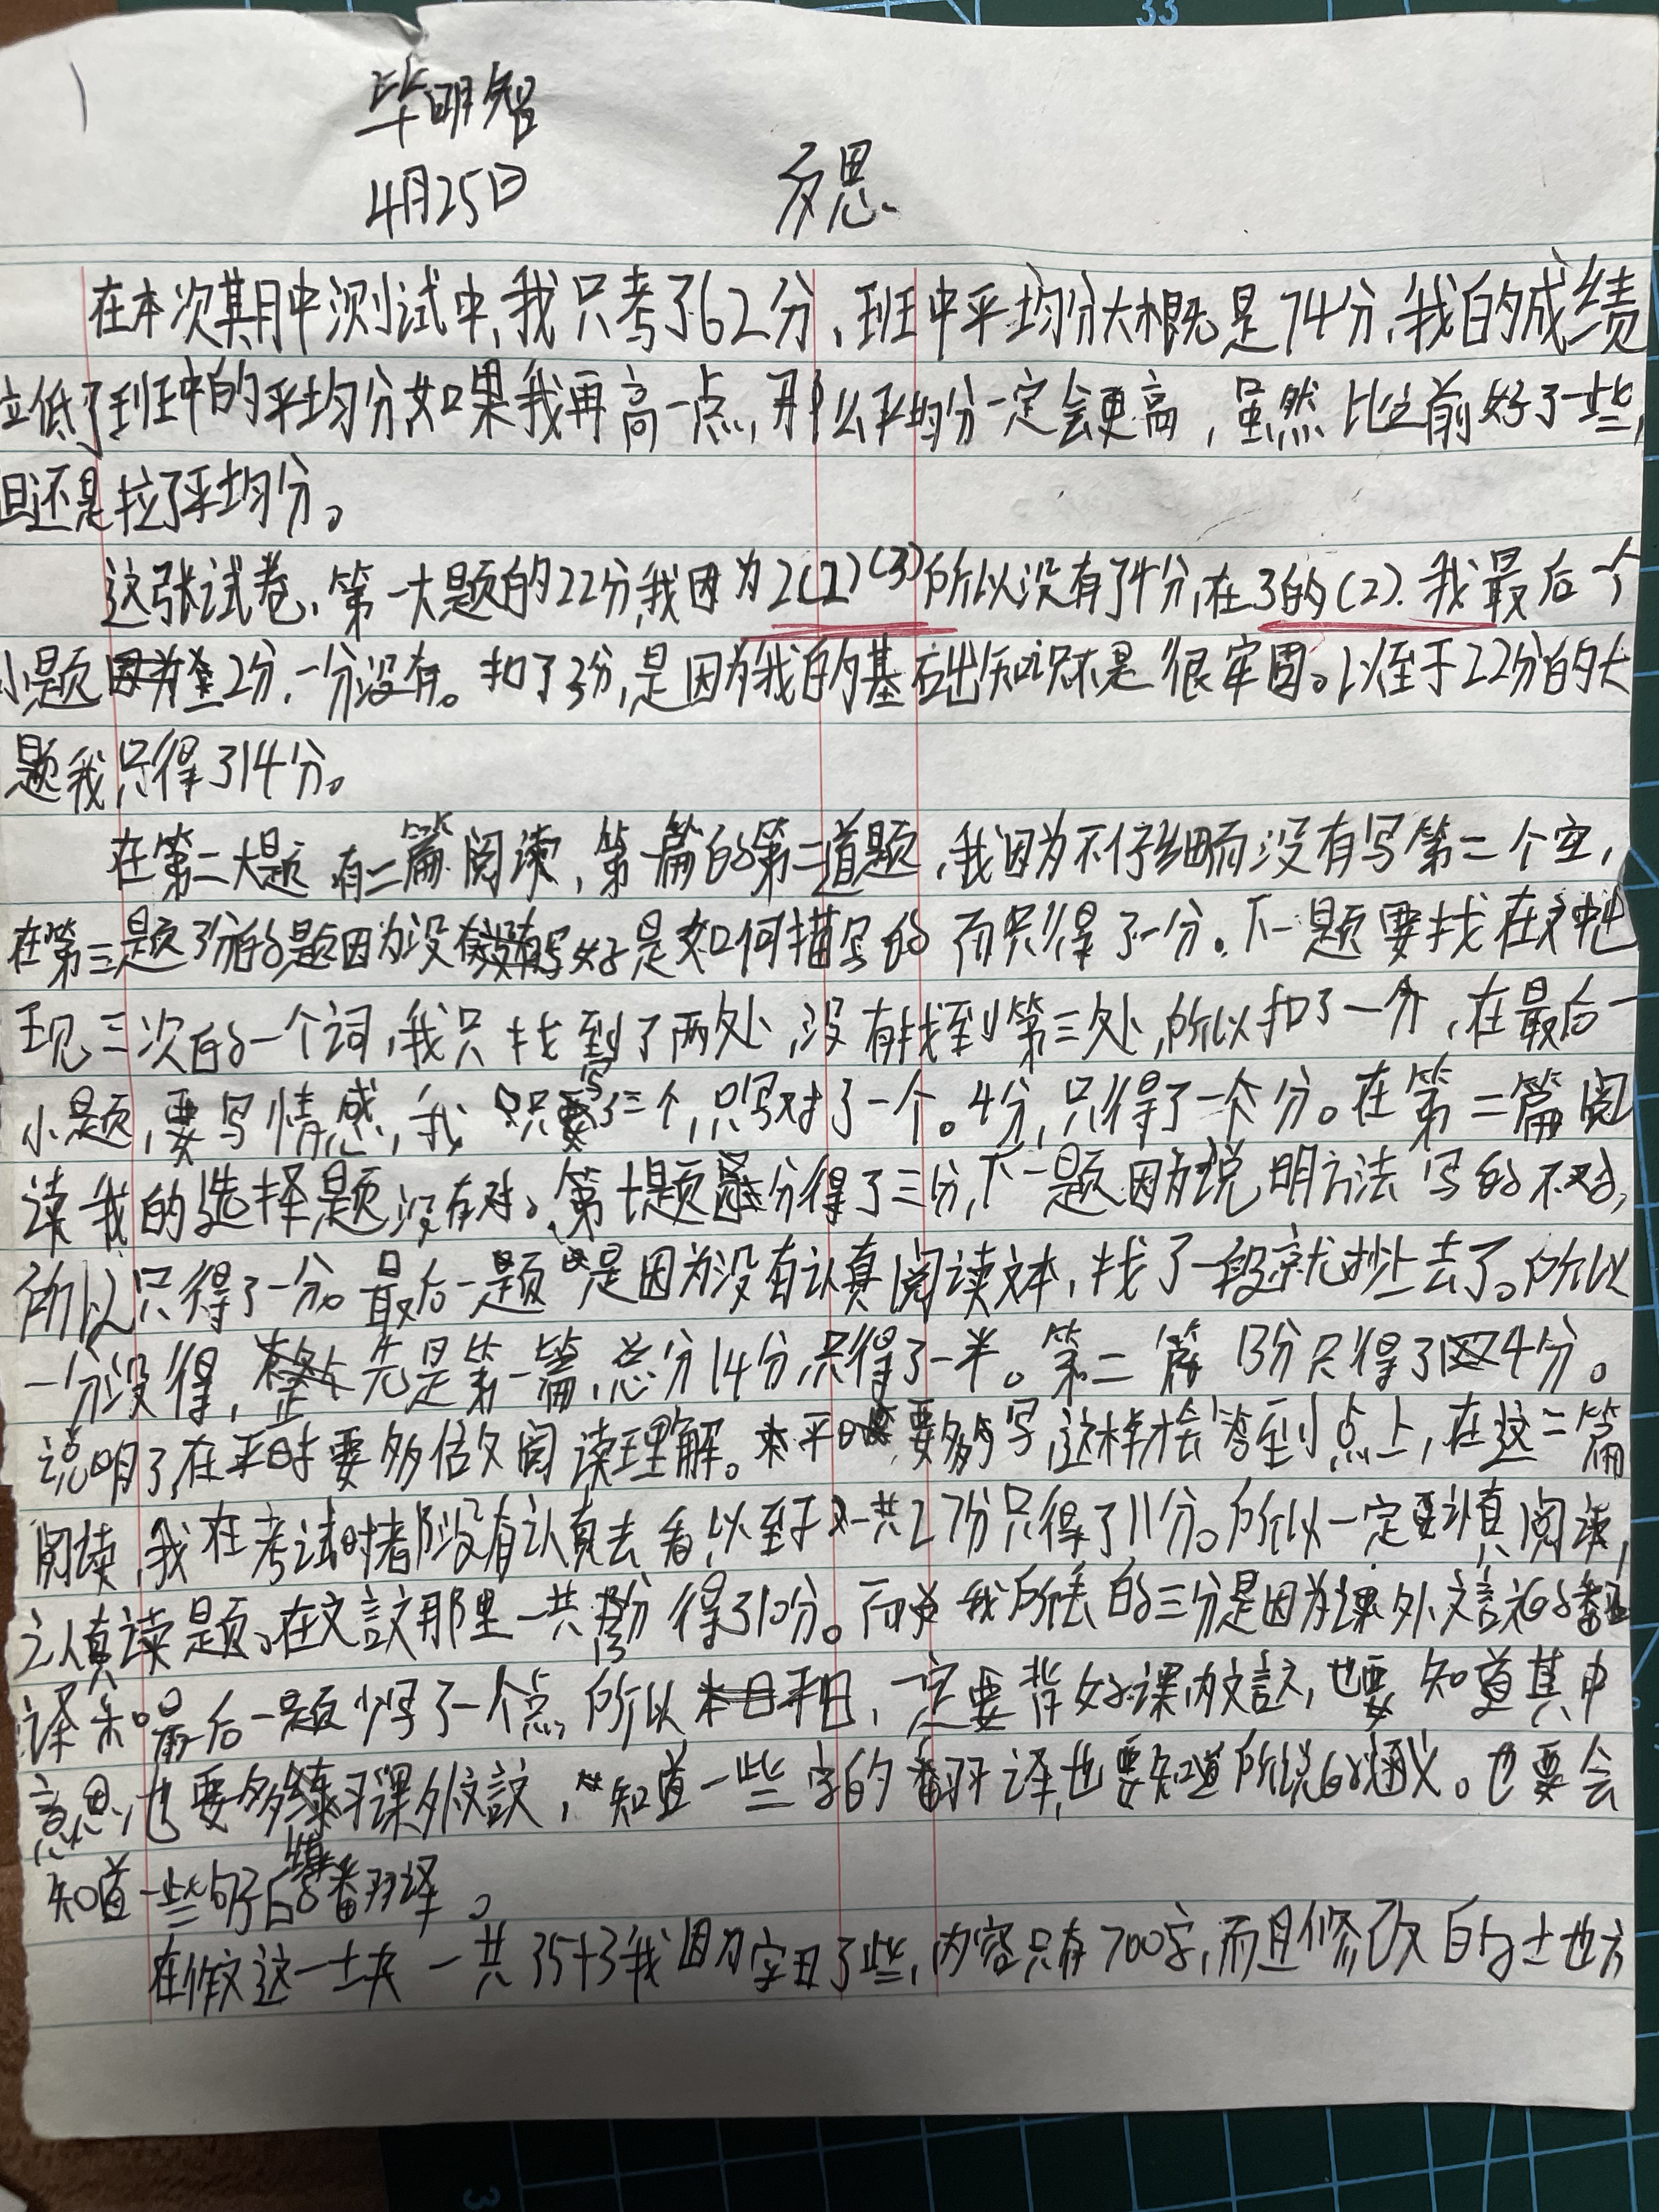 33
毕明智
4月25日
反思
在本次期中测试中,我只考了62分,班中平均分大概是74分,我的成绩
拉低了班中的平均分,如果我再高一点,那么平均分一定会更高,虽然比之前好了一些,
但还是拉了平均分。
这张试卷,第一大题的22分,我因为2(2)(3)所以没有了4分,在3的(2).我最后一个
小题2分,一分没有。扣了3分,是因为我的基础知识不是很牢固。以至于22分的大
题我只得了14分。
在第二大题有二篇阅读,第一篇的第二道题,我因为不仔细而没有写第二个空,
在第三题3分的题因为没有写好是如何描写的而只得了一分。下一题要找在文中出
现三次的一个词,我只找到了两处,没有找到第三处,所以扣了一分,在最后一
小题,要写情感,我只写了三个,只写对了一个。4分,只得了一个分。在第二篇阅
读我的选择题没有对。第十题分得了三分,下一题因为说明方法写的不对,
所以只得了一分。最后一题是因为没有认真阅读文本,找了一段就抄上去了。所以
一分没得,先是第一篇,总分14分,只得了一半。第二篇13分只得了4分。
说明了在平时要多做阅读理解。平时要多写,这样才会答到点上,在这二篇
阅读,我在考试时都没有认真去看,以至于一共27分只得了11分。所以一定要认真阅读,
认真读题。在文言文那里一共13分得了10分。而我所丢的三分是因为课外文言文的翻
译和最后一题少写了一个点,所以,一定要背好课内文言文,也要知道其中
意思,也要多练习课外文言文,知道一些字的翻译,也要知道所说的涵义。也要会
知道一些句子的翻译。
在作文这一大块一共35+3我因为字丑了些,内容只有700字,而且修改的地方
3